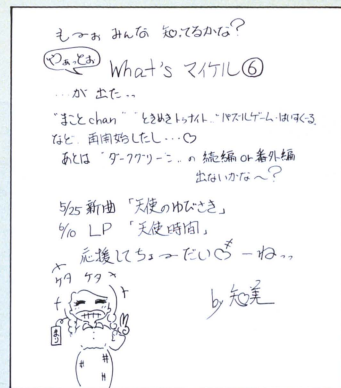 もーぉ みんな 知ってるかな?
やぁっとぉ
What's マイケル⑥
…が 出た..
"まことchan" "ときめきトゥナイト" "パズルゲーム・はいすくーる"
など、再開始したし…♡
あとは "ダークグリーン" の 続編 or 番外編
出ないかな〜?
5/25 新曲 「天使のゆびさき」
6/10 LP 「天使時間」
応援してちょーだい♡ーね..
ケタ ケタ
by 知美